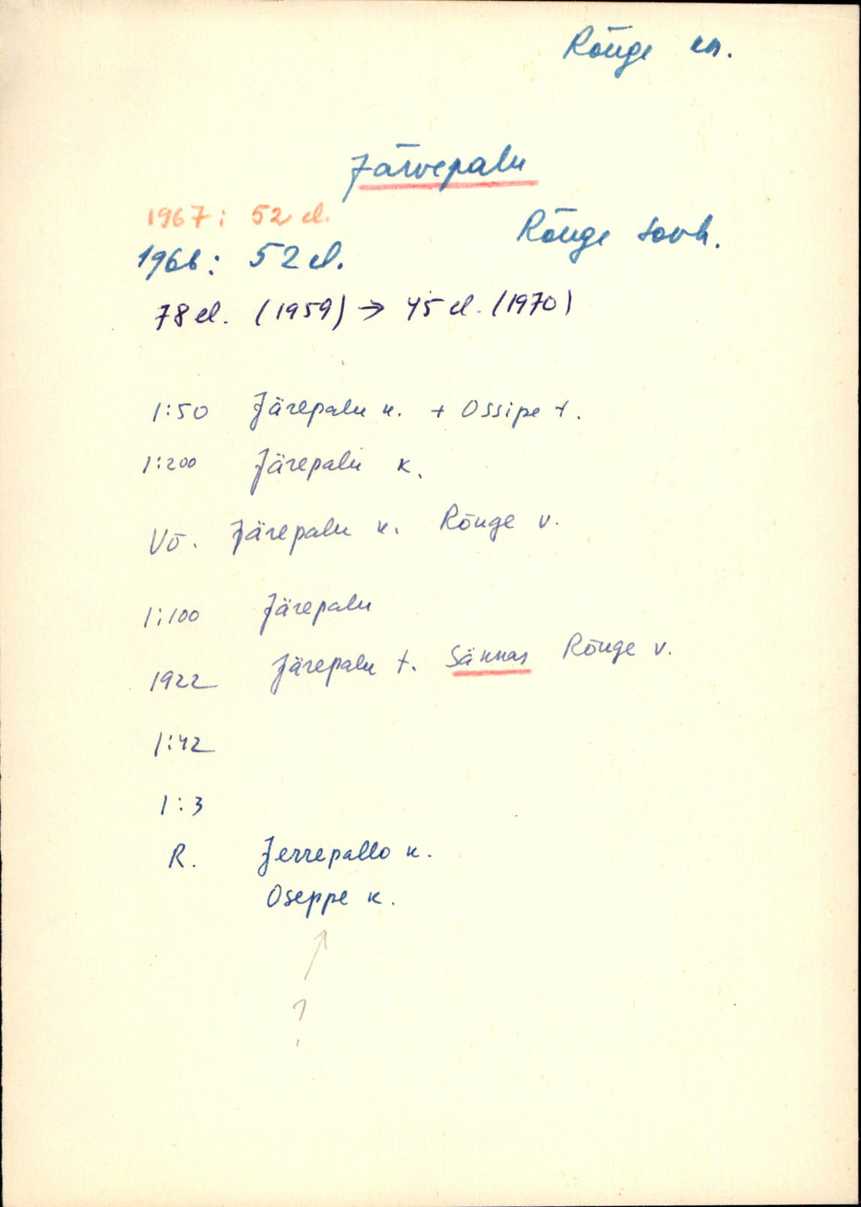 Rõuge kn.
Järvepalu
1967: 52 el.
Rõuge sovh.
1966: 52 el.
78 el. (1959) → 45 el. (1970)
1:50 Järepalu k. + Ossipe t.
1:200 Järepalu k.
Võ. Järepalu k. Rõuge v.
1:100 Järepalu
1922 Järepalu t. Sännas Rõuge v.
1:42
1:3
R. Jerrepallo k.
Oseppe k.
?